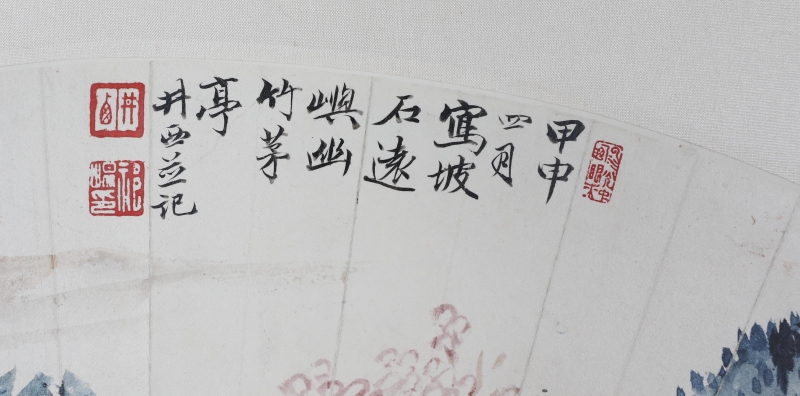 甲申
四月
寫坡
石遠
嶼幽
竹茅
亭
井西並記